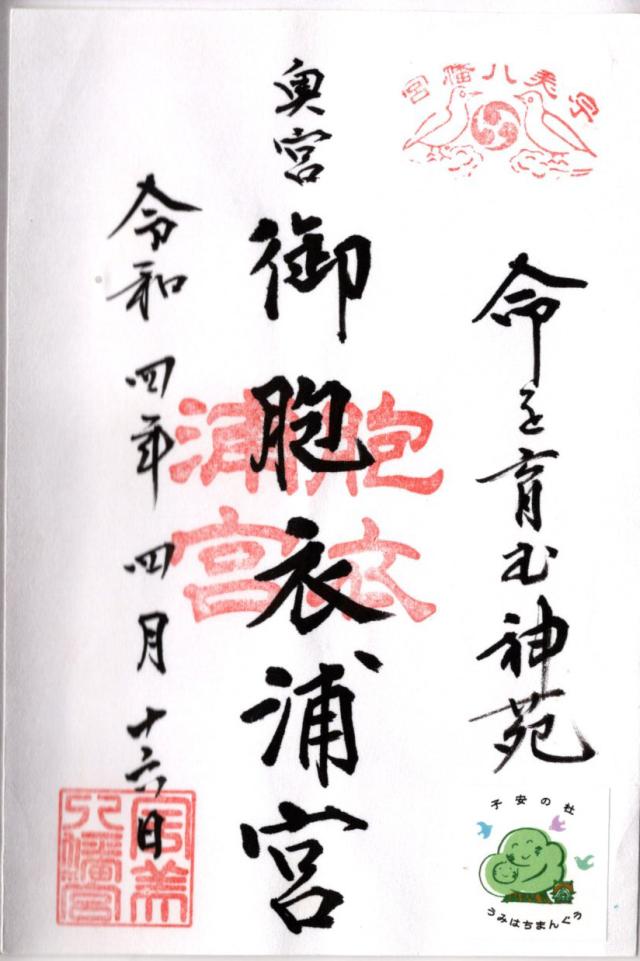 宇美八幡宮
命を育む神苑
奥宮
御胞衣浦宮
胞衣
浦宮
令和四年四月十六日
宇美
八幡宮
子安の杜
うみはちまんぐう